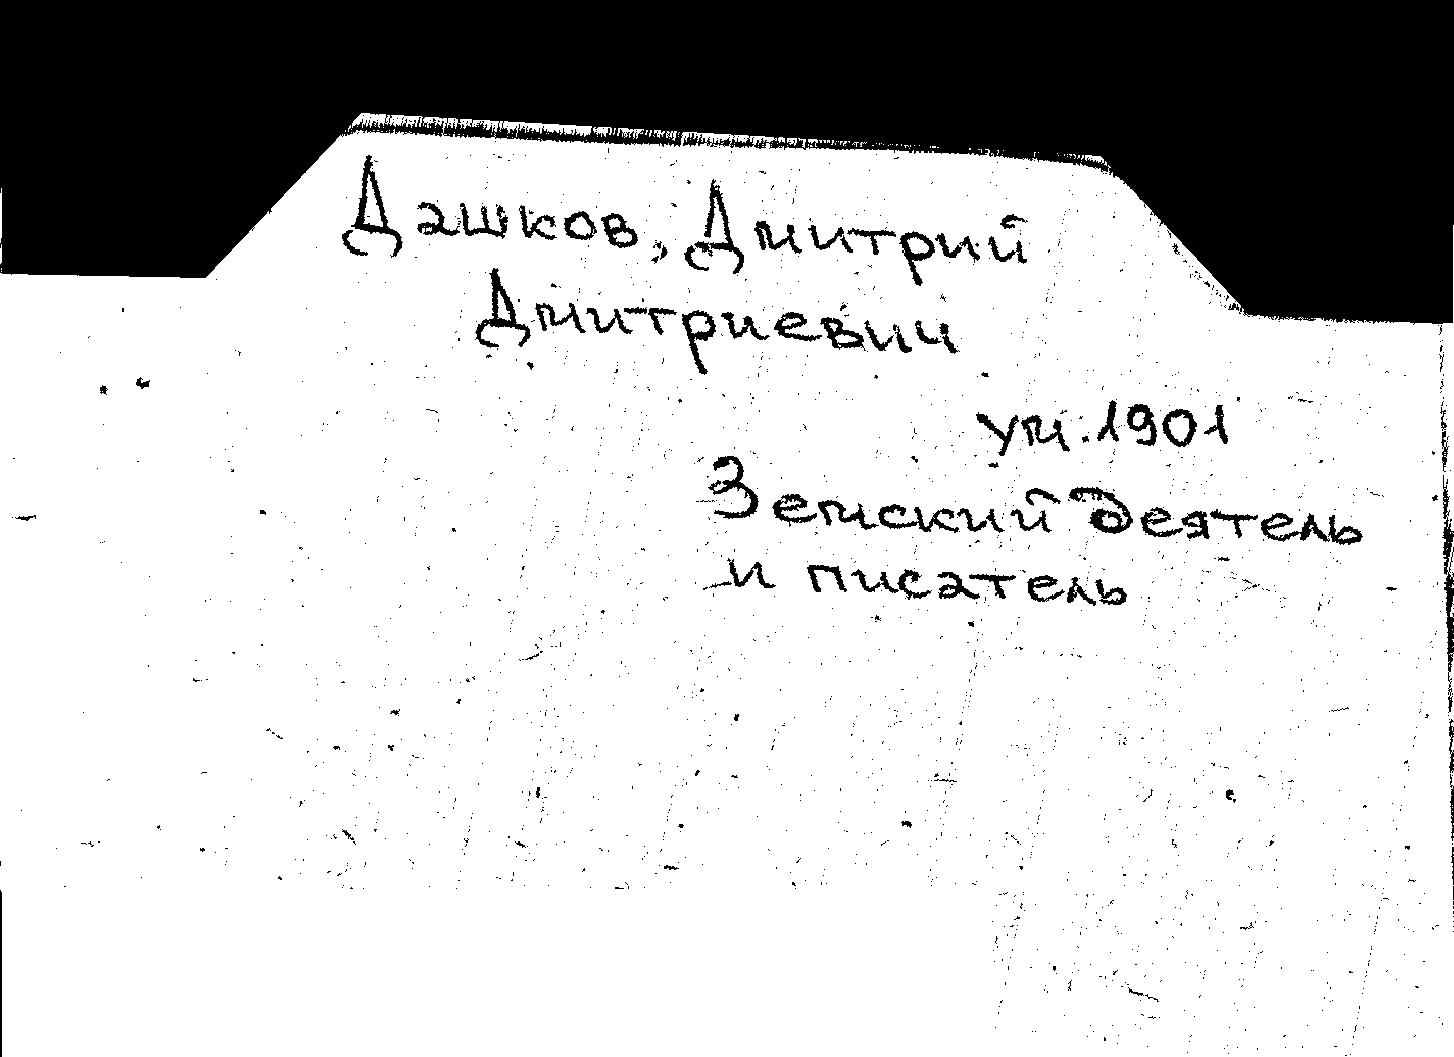 Дашков, Дмитрий
Дмитриевич
ум. 1901
Земский деятель
и писатель